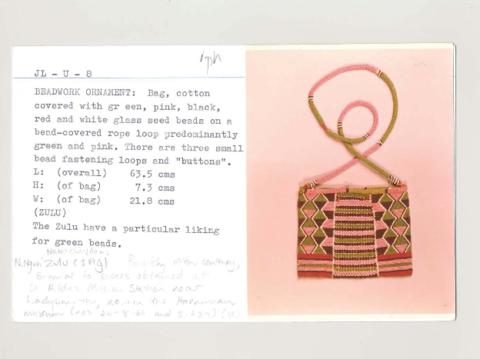 JL - U - 8
BEADWORK ORNAMENT: Bag, cotton
covered with gr een, pink, black,
red and white glass seed beads on a
bead-covered rope loop predominantly
green and pink. There are three small
bead fastening loops and "buttons".
L: (overall) 63.5 cms
H: (of bag) 7.3 cms
W: (of bag) 21.8 cms
(ZULU)
The Zulu have a particular liking
for green beads.
N. Nguni ZULU
similar to obtained at
Mission Station near
in the
museum